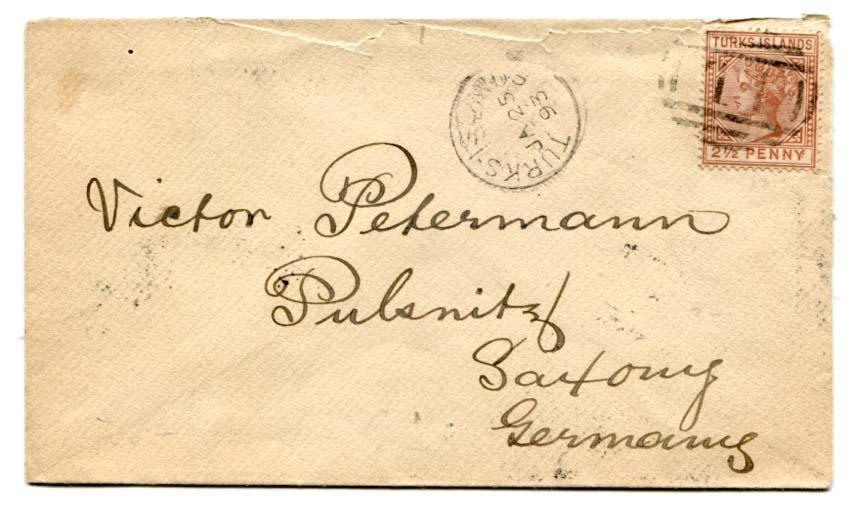 TURKS ISLANDS
2½ PENNY
TURKS-ISLAND
JA 25
93
Victor Petermann
Pulsnitz
Saxony
Germany